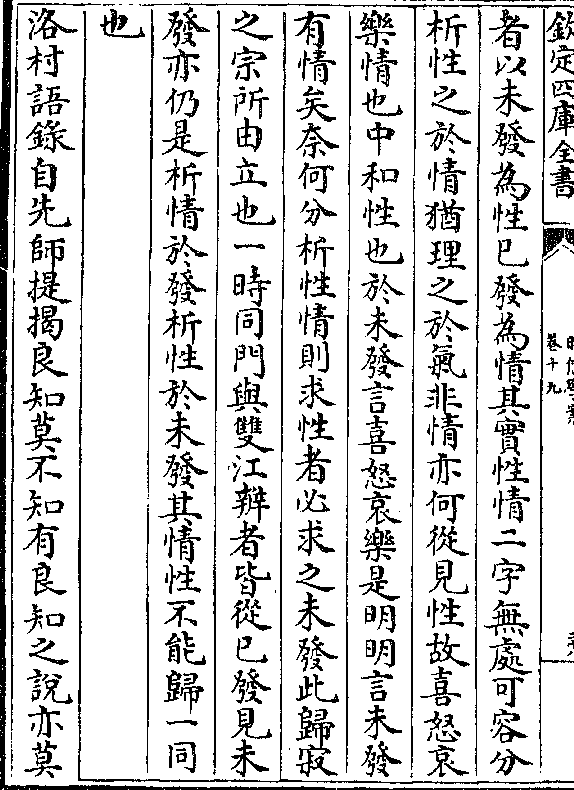 欽定四庫全書
卷十九
者以未發為性已發為情其實性情二字無處可容分
析性之於情猶理之於氣非情亦何從見性故喜怒哀
樂情也中和性也於未發言喜怒哀樂是明明言未發
有情矣奈何分析性情則求性者必求之未發此歸寂
之宗所由立也一時同門與雙江辨者皆從已發見未
發亦仍是析情於發析性於未發其情性不能歸一同
也
洛村語錄自先師提揭良知莫不知有良知之說亦莫